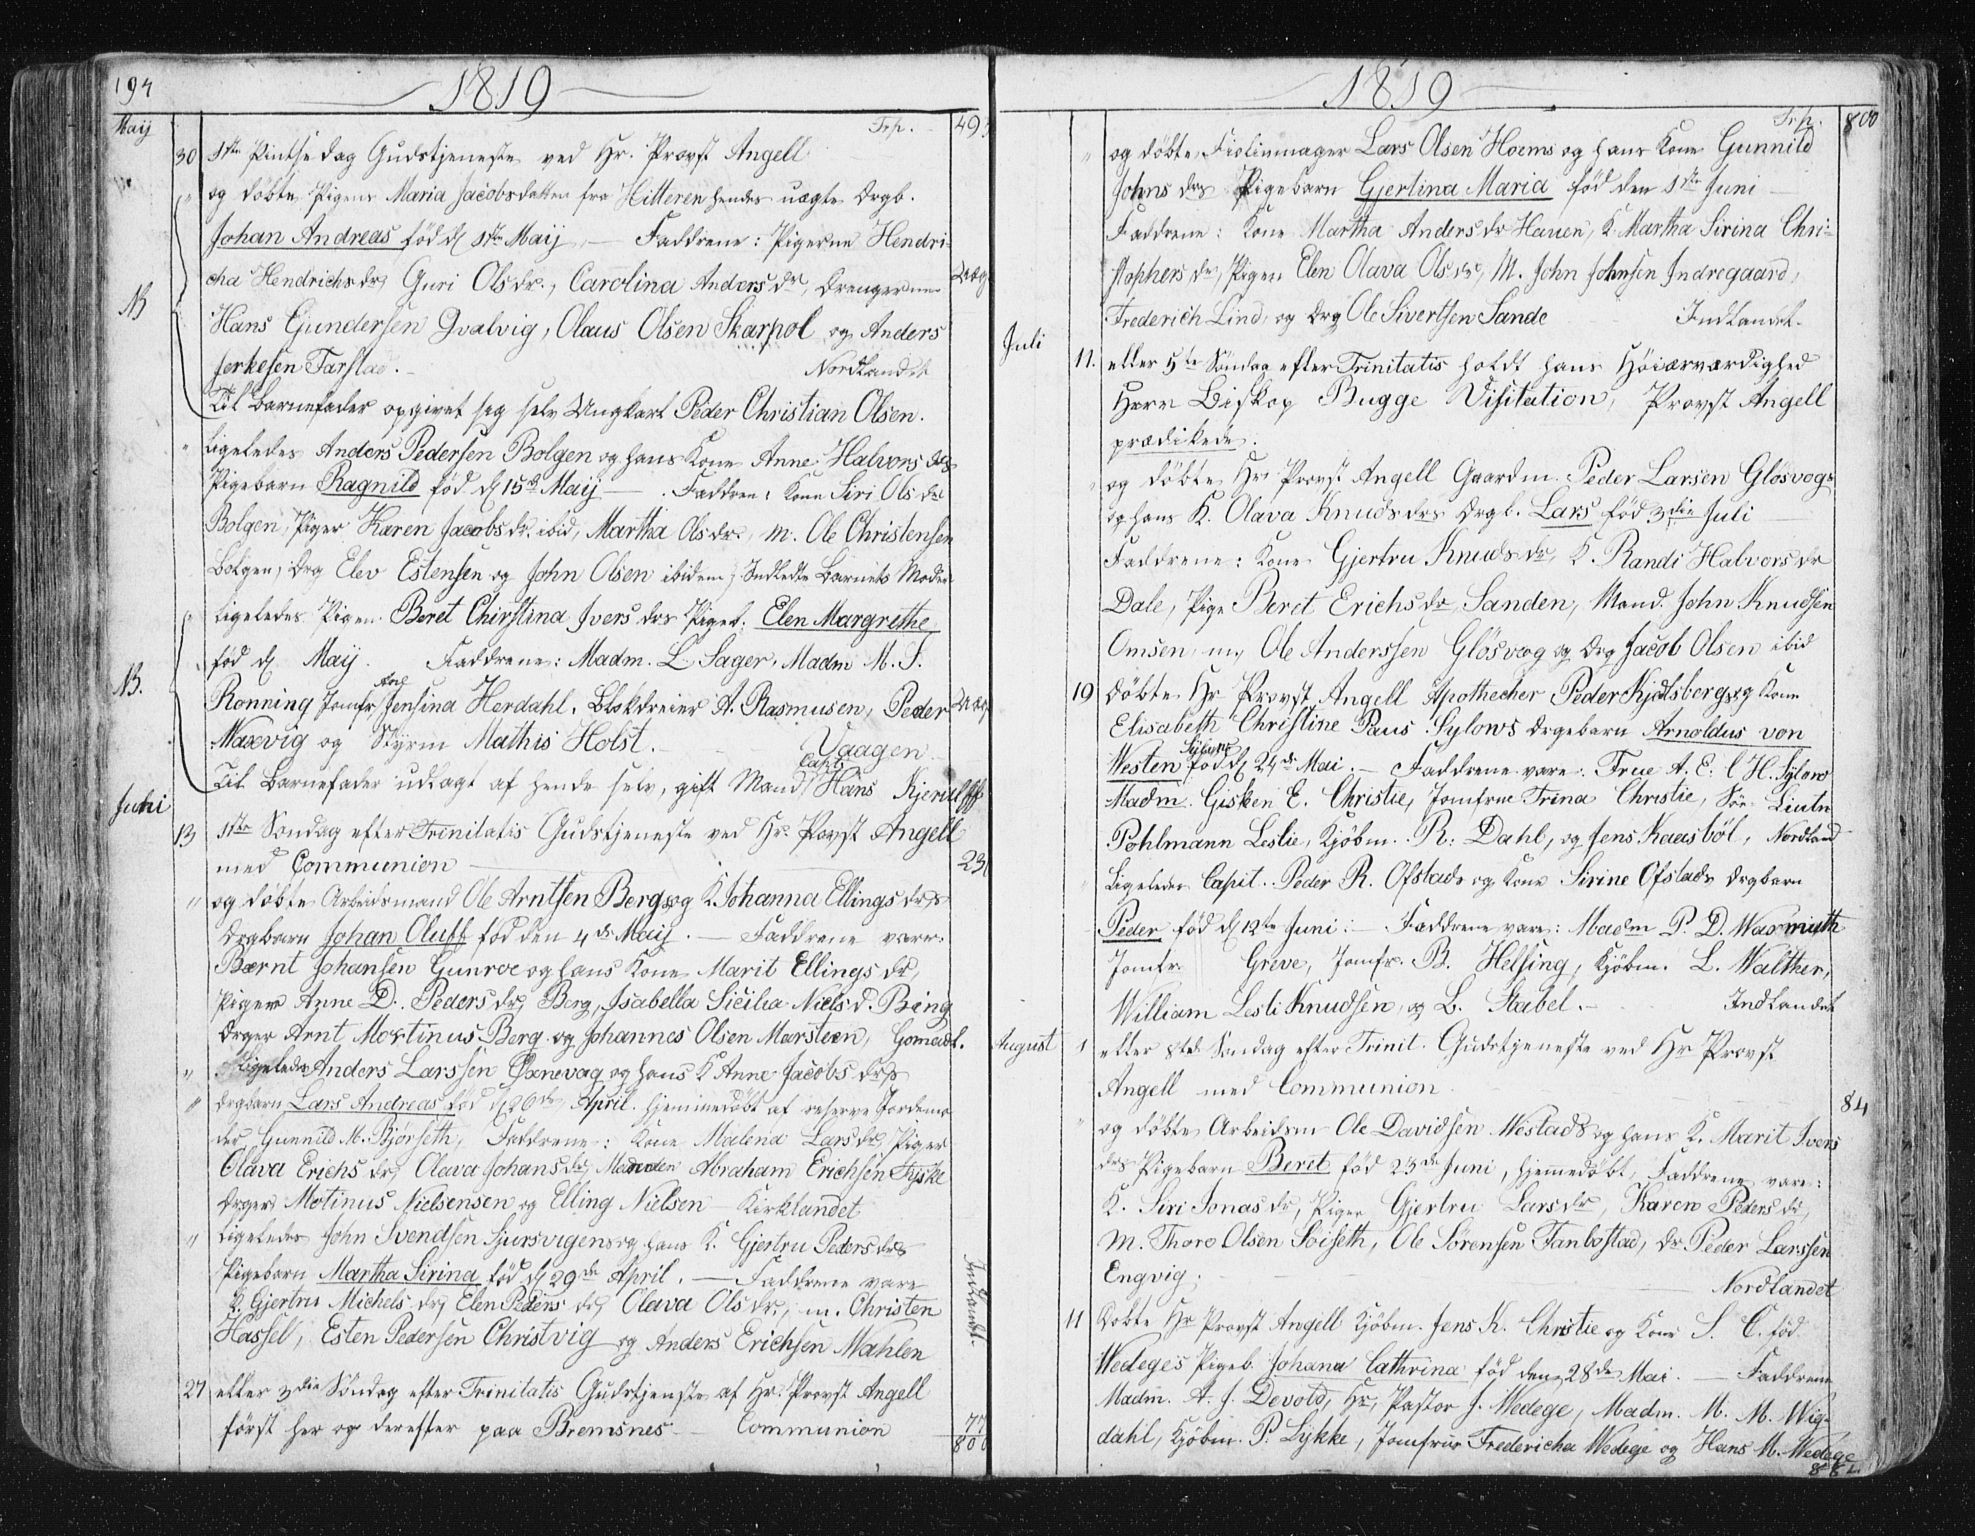 194
1819
May
Trp.
493
30 1ste Pintsedag Gudstjeneste ved Hr. Provst Angell
" og døbte Pigens Maria Jacobsdatter fra Hitteren hendes uægte Drgb.
Johan Andreas fød d 1ste Maij — Faddrene: Pigerne Hendri-
cha Hendrichs dr, Guri Ols dr., Carolina Anders dr, Drengerne
Uæg
NB
Hans Gundersen Qvalvig, Olaus Olsen Skarpol og Anders
Jerkesen Farstad. — Nordlandet
Til Barnefader opgivet sig selv Ungkarl Peder Christian Olsen.
" Ligeledes Anders Pedersen Bolgen og hans Kone Anne Halvors drs
Pigebarn Ragnild fød d 15de Maij — . Faddren: Kone Siri Ols dr
Bolgen, Piger Karen Jacobs dr. ibid, Martha Ols dr., m. Ole Christensen
Bolgen, Drg Elev Estensen og John Olsen ibidem; Indledte Barnets Moder
" Ligeledes Pigen Beret Chirstina Ivers drs Pigeb. Elen Margrethe
fød d Maij. Faddrene: Madm. L Sager, Madm M. F.
NB.
Ronning Jomfr Jensina Herdahl, Blokdreier A. Rasmusen, Peder
Uæg
Waxvig og Styrm Mathis Holst. — Vaagen
Til Barnefader udlagt af hende selv, gift Mand Capt. Hans Kjerulff
Juni
13 1ste Søndag efter Trinitatis Gudstjeneste ved Hr. Provst Angell
med Communion — 23
" og døbte Arbeidsmand Ole Arntsen Bergs og K. Johanna Ellings drs
Drgbarn Johan Oluff fød den 4de Maij. — Faddrene vare
Bærnt Johansen Gunroe og hans Kone Marit Ellings dr,
Piger Anne D. Peders dr, Berg, Isabella Sicilia Niels d. Bing
Drger Arnt Mortinus Berg og Johannes Olsen Marsteen, Gomendl.
" Ligeledes Anders Larssen Øxnevag og hans K Anne Jacobs drs
" Drgbarn Lars Andreas fød d 26de April. hjemmedøbt af reserve Jordemo-
der Gunnild M. Bjørseth, Faddrene: Kone Malena Lars dr, Piger
Olava Erichs dr, Olava Johans dr, Manden Abraham Erichsen Fyske
Drger Motinus Nielsensen og Elling Nielsen — Kirklandet
" Ligeledes John Svendsen Sjursvigens og hans K. Gjertru Peders drs
Pigebarn Martha Sirina fød d 29de April. — Faddrene vare
K. Gjertru Michels dr, Elen Peders dr, Olava Ols dr, m. Christen
Hassel, Esten Pedersen Christvig og Anders Erichsen Mahlen
Indlandt.
27 eller 3die Søndag efter Trinitatis Gudstjeneste af Hr. Provst Angell
først her og derefter paa Bremsnes — Communion 77
800
1819
Trp.
800
" og døbte Fiolinmager Lars Olsen Hoems og hans Kone Gunnild
Johns drs Pigebarn Gjertina Maria fød den 1ste Juni —
Faddrene: Kone Martha Anders dr Hauen, K Martha Sirina Chri-
stophers dr, Pigen Elen Olava Ols dr, M. John Johnsen Indregaard,
Frederich Lind, og Drg Ole Sivertsen Sande Indlandet.
Juli
11. eller 5te Søndag efter Trinitatis holdt hans Høiærværdighed
Herr Biskop Bugge Visitation, Provst Angell
prædikede.
" og døbte Hr Provst Angell Gaardm. Peder Larsen Gløsvogs
og hans K. Olava Knuds drs Drgb. Lars fød 3die Juli —
Faddrene: Kone Gjertru Knuds dr, K. Randi Halvors dr
Dale, Pige Beret Erichs dr Sanden, Mand John Knudsen
Omsen, m. Ole Anderssen Gløsvog og Drg Jacob Olsen ibid
19 døbte Hr Provst Angell Apothecher Peder Kjelsbergs og Kone
Elisabeth Christine Paus Sylows Drgebarn Arnoldus von
Westen Sylow fød d 24de Mai. — Faddrene vare. Frue A. E. l H. Sylow
Madm. Gisken E. Christie, Jomfrue Trina Christie, Sør- Liutn
Pohlmann Leslie, Kjøbm. R: Dahl, og Jens Kaasbøl, Nordland
" Ligeledes Capit. Peder R. Ofstads og Kone Sirine Ofstads Drgbarn
Peder fød d 12te Juni: — Faddrene vare: Madm P. D. Waxmuth
Jomfr. Greve, Jomfr. B. Helsing, Kjøbm. L. Walther,
William Lesli Knudsen, og B. Stabel. — Indlandet
August 1 eller 8tde Søndag efter Trinit. Gudstjeneste ved Hr Provst
Angell med Communion — 84
" og døbte Arbeidsm Ole Davidsen Westads og hans K. Marit Ivers
drs Pigebarn Beret fød 23de Juni, hjemedøbt, Faddrene vare:
K. Siri Jonas dr, Piger Gjertru Lars dr, Karen Peders dr,
M. Thore Olsen Soiseth, Ole Sørensen Fanbostad, Dr Peder Larssen
Engvig. — Nordlandet
11 Døbte Hr Provst Angell Kjøbm. Jens K. Christie og Kone S. C. fød
Wedeges Pigeb. Johana Cathrina fød den 28de Mai. — Faddrene
Madm. A. J. Devold, Hr, Pastor J. Wedege, Madm. M. M. Wig-
dahl, Kjøbm. P. Lykke, Jomfrue Fredericha Wedege og Hans M. Wedege
884